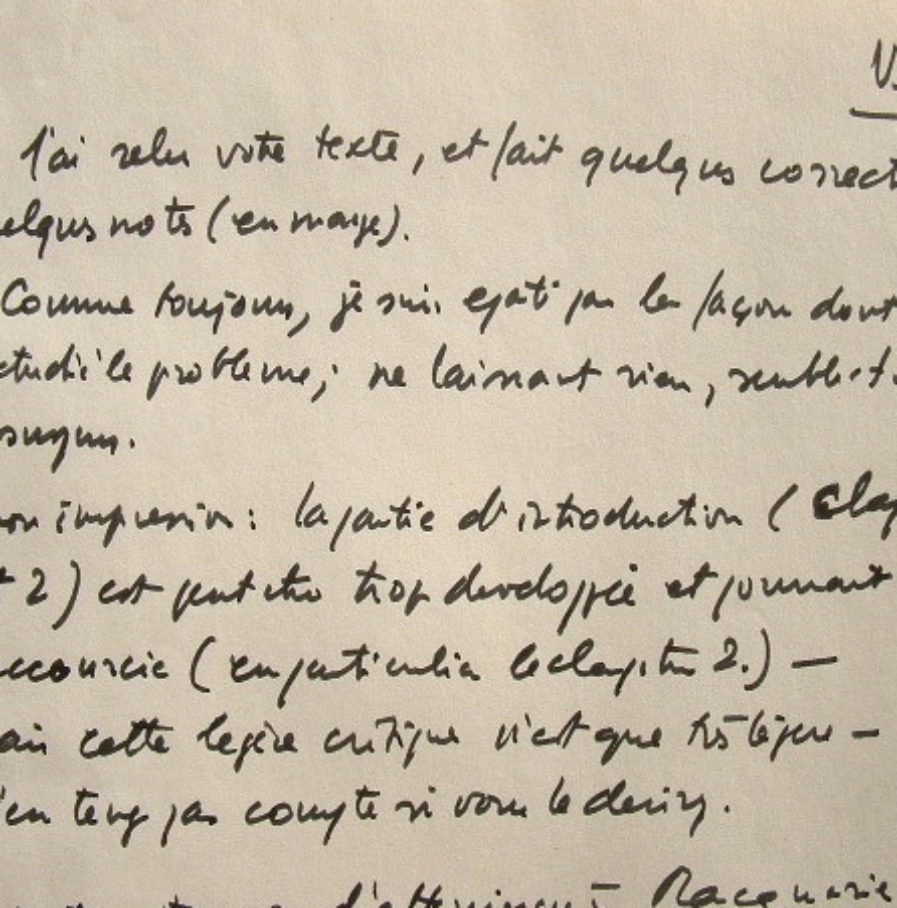 J'ai relu votre texte, et fait quelques correct
elques notes (en marge).
Comme toujours, je suis epaté par la façon dont
etudié le probleme; ne laissant rien, semble-t-
suspens.
on impression: la partie d'introduction (Chap
t 2) est peut etre trop developpée et pourrait
ccourcie (en particulier le chapitre 2.) —
ais cette legère critique n'est que très légère —
'en tenez pas compte si vous le desirez.